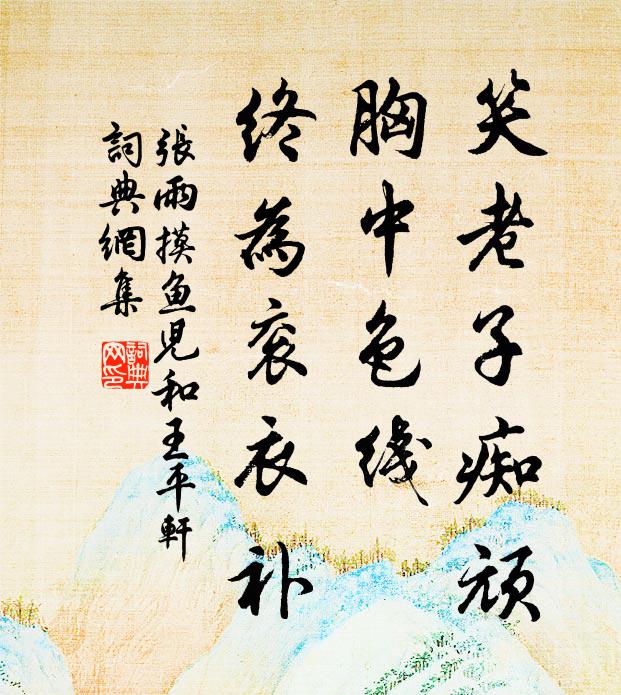 笑老子痴顽
胸中色线
终為衮衣补
張雨摸鱼児和王平軒
詞典網集
詞典网印